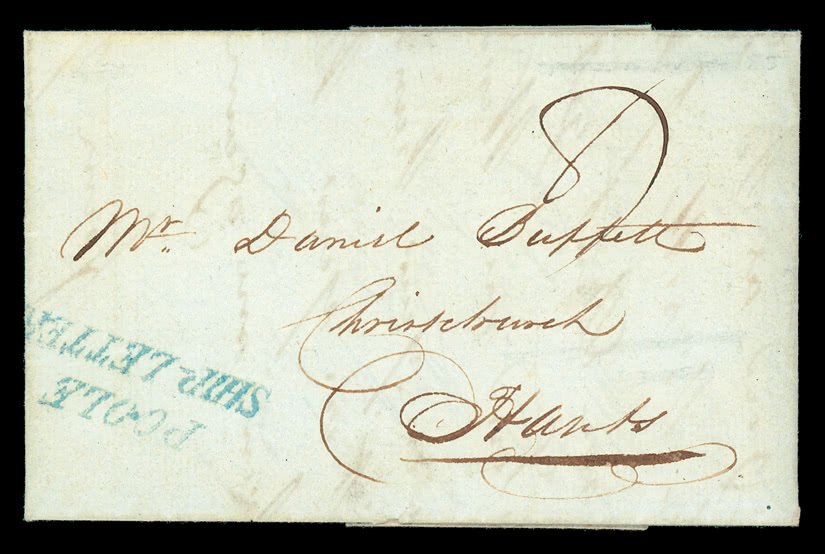 8
Mr. Daniel Buffett
Christchurch
Hants
POOLE
SHIP LETTER